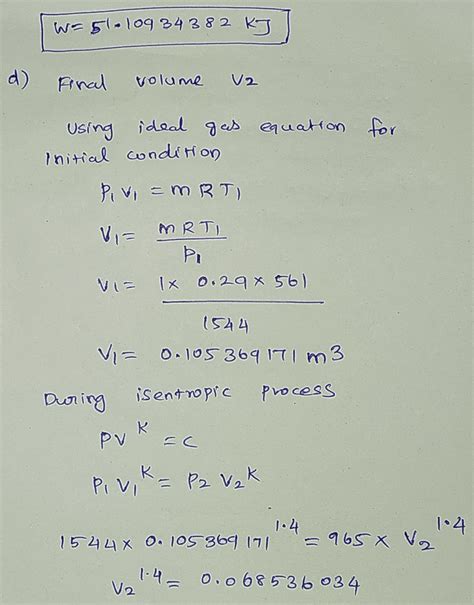 W= 51.10934382 KJ
d) Final volume V2
Using ideal gas equation for
initial condition
P₁ V₁ = m R T₁
V₁ = m R T₁
P₁
V₁ = 1 x 0.29 x 561
1544
V₁ = 0.105369171 m3
During isentropic process
PV^K = C
P₁ V₁^K = P₂ V₂^K
1544 x 0.105369171^1.4 = 965 x V₂^1.4
V₂^1.4 = 0.068536034